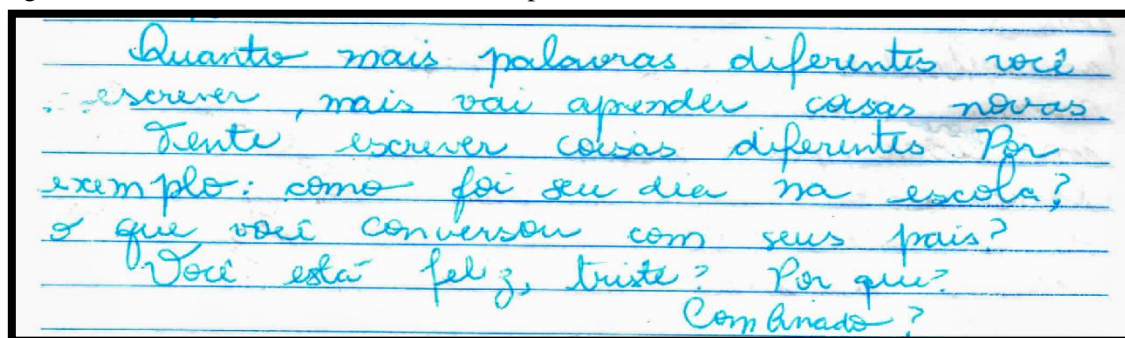 Quanto mais palavras diferentes você
escrever, mais vai aprender coisas novas.
Tente escrever coisas diferentes. Por
exemplo: como foi seu dia na escola?
o que você conversou com seus pais?
Você está feliz, triste? Por que?
Combinado?